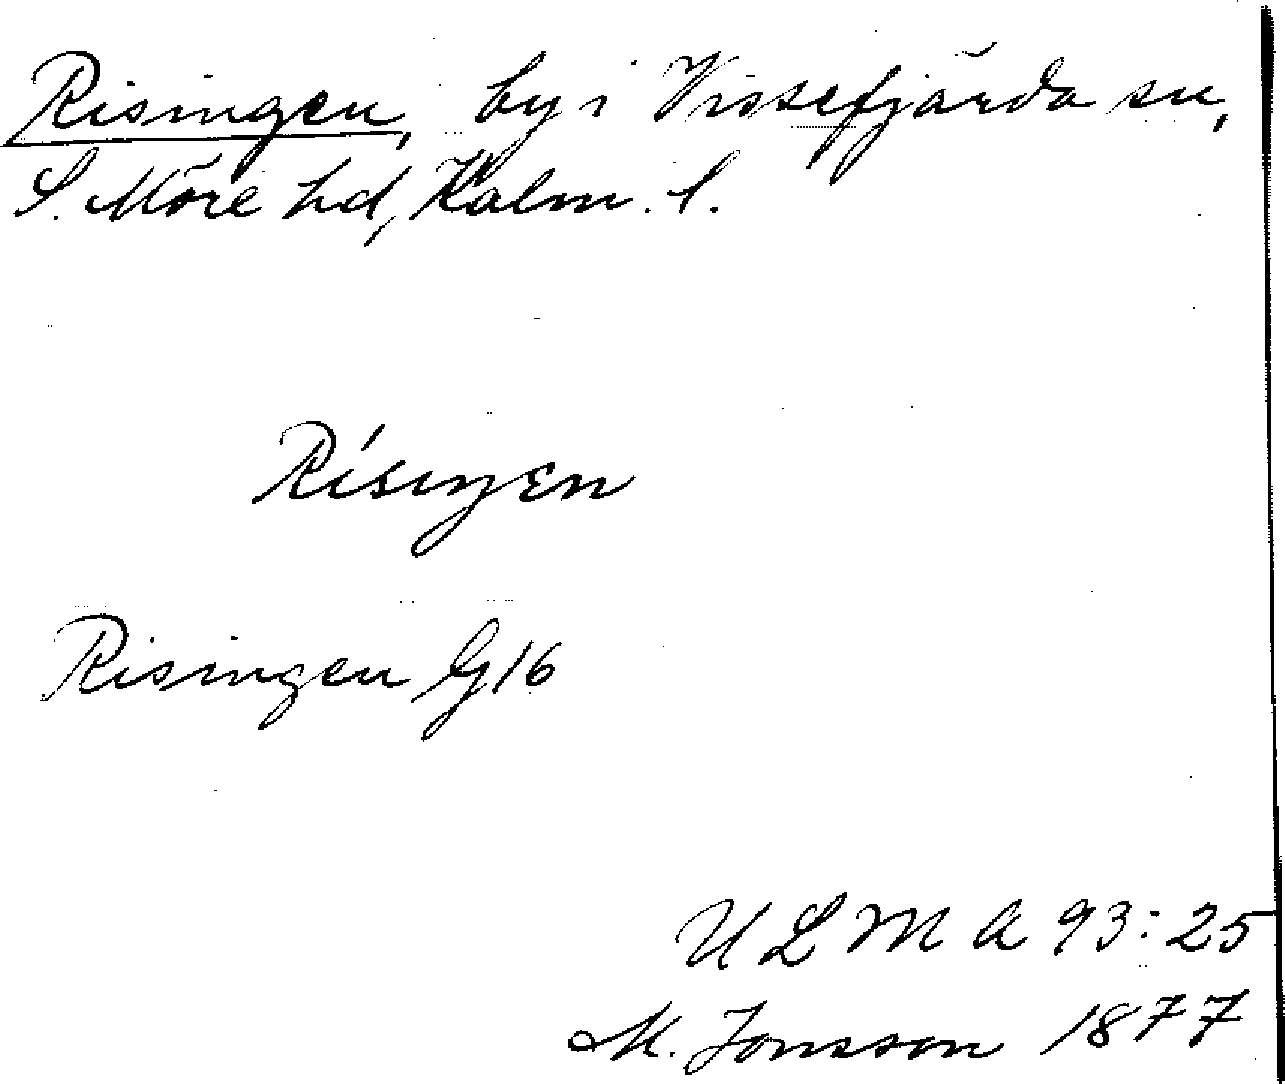 Risingen, by i Vissefjärda sn,
S. Möre hd, Kalm. l.
Risingen G16
ULMA 93:25
M. Jonsson 1877